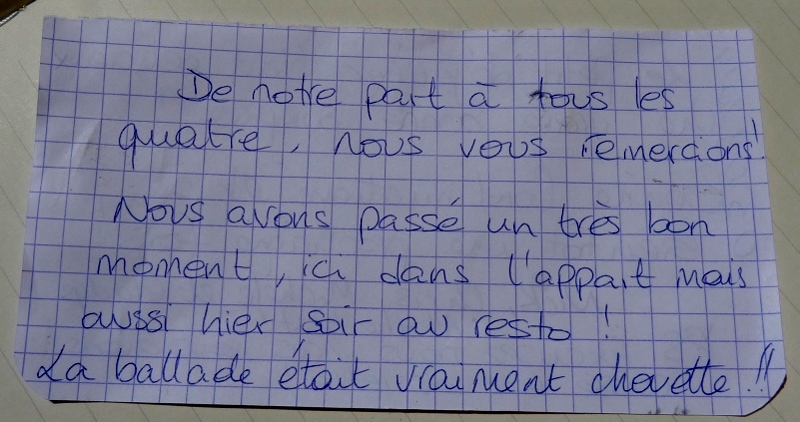 De notre part à tous les
quatre, nous vous remercions!
Nous avons passé un très bon
moment, ici dans l'appart mais
aussi hier soir au resto !
La ballade était vraiment chouette !!